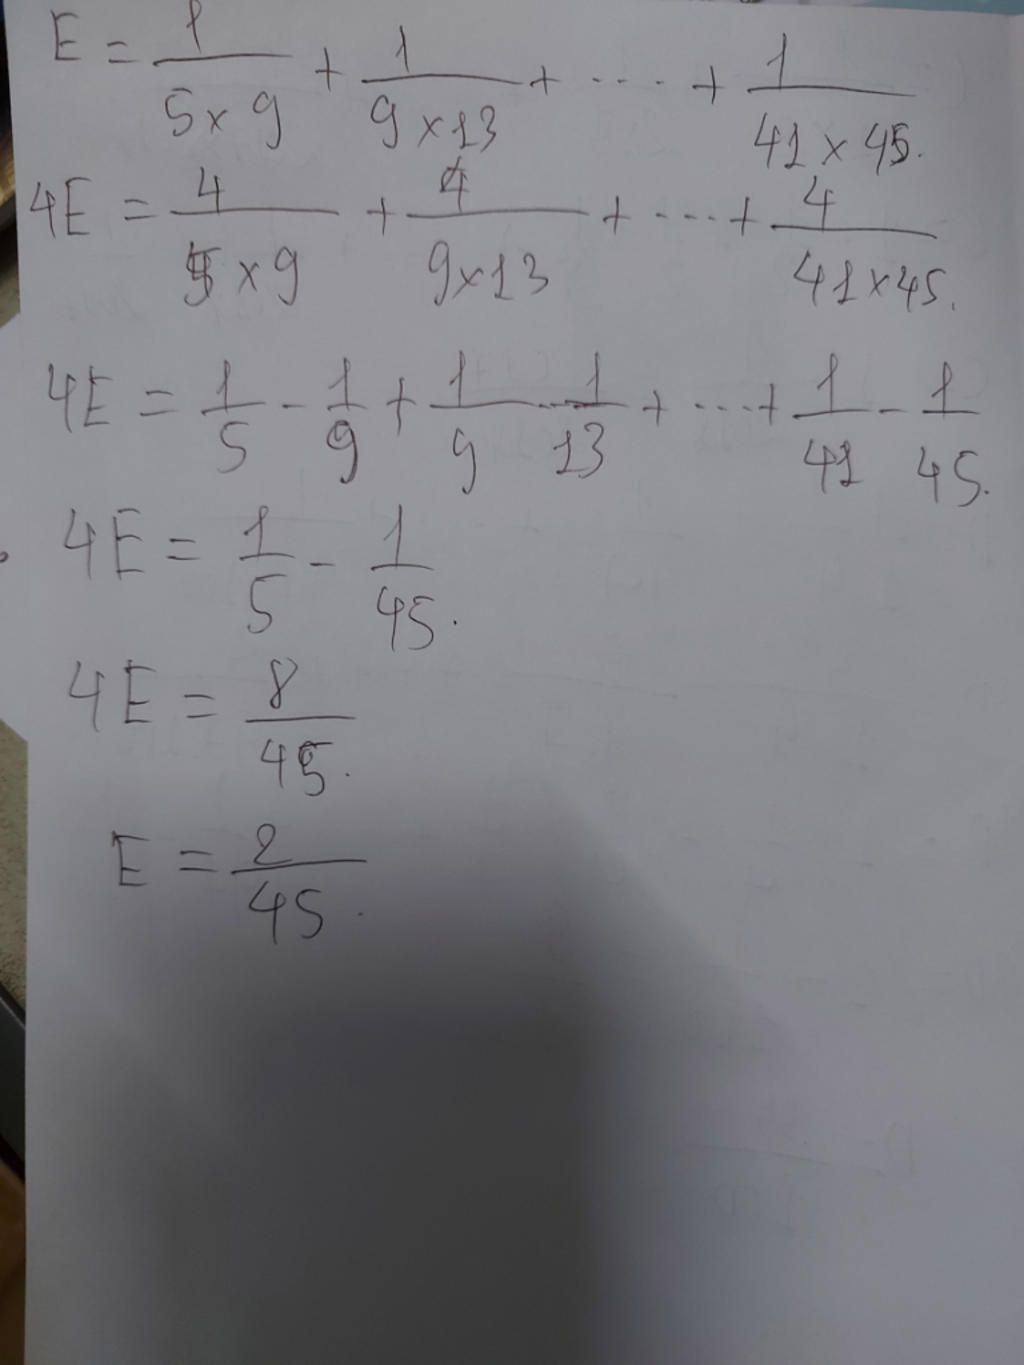 E = 1/(5 x 9) + 1/(9 x 13) + .... + 1/(41 x 45).
4E = 4/(5 x 9) + 4/(9 x 13) + ... + 4/(41 x 45).
4E = 1/5 - 1/9 + 1/9 - 1/13 + ... + 1/41 - 1/45.
4E = 1/5 - 1/45.
4E = 8/45.
E = 2/45.